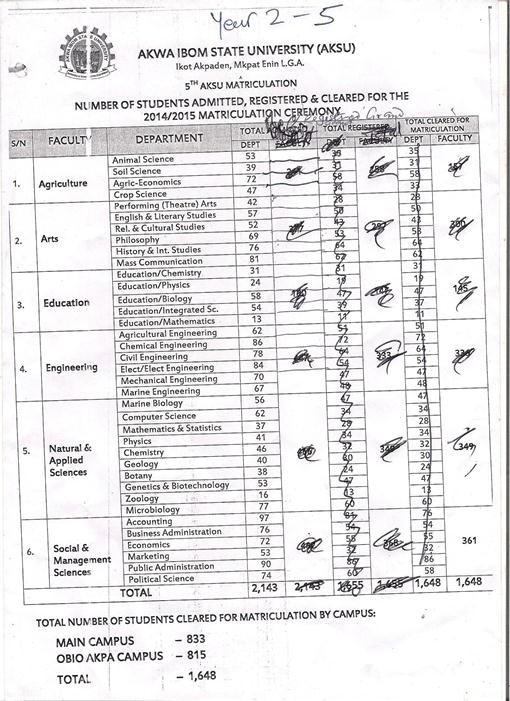 Year 2 - 5
AKWA IBOM STATE UNIVERSITY (AKSU)
Ikot Akpaden, Mkpat Enin L.G.A.
5TH AKSU MATRICULATION
NUMBER OF STUDENTS ADMITTED, REGISTERED & CLEARED FOR THE
2014/2015 MATRICULATION CEREMONY
S/N FACULTY DEPARTMENT TOTAL TOTAL REGISTERED TOTAL CLEARED FOR MATRICULATION
DEPT DEPT FACULTY
1. Agriculture
Animal Science 53 35
Soil Science 39 31
Agric-Economics 72 58 58
Crop Science 47 33
2. Arts
Performing (Theatre) Arts 42 28 28
English & Literary Studies 57 50 50
Rel. & Cultural Studies 52 43 43
Philosophy 69 53
History & Int. Studies 76 64 64
Mass Communication 81 62 62
3. Education
Education/Chemistry 31 31 31
Education/Physics 24 19 19
Education/Biology 58 47 47
Education/Integrated Sc. 54 39 37
Education/Mathematics 13 11 11
4. Engineering
Agricultural Engineering 62 51 51
Chemical Engineering 86 72 72
Civil Engineering 78 64 64
Elect/Elect Engineering 84 54 54
Mechanical Engineering 70 47 47
Marine Engineering 67 48 48
5. Natural & Applied Sciences
Marine Biology 56 47 47
Computer Science 62 34 34
Mathematics & Statistics 37 28 28
Physics 41 34 34
Chemistry 46 32 32 349
Geology 40 30 30
Botany 38 24 24
Genetics & Biotechnology 53 47 47
Zoology 16 13 13
Microbiology 77 60 60
6. Social & Management Sciences
Accounting 97 76
Business Administration 76 54 54
Economics 72 55 55 361
Marketing 53 32 32
Public Administration 90 86 86
Political Science 74 60 58
TOTAL 2,143 2,143 1,655 1,655 1,648 1,648
TOTAL NUMBER OF STUDENTS CLEARED FOR MATRICULATION BY CAMPUS:
MAIN CAMPUS – 833
OBIO AKPA CAMPUS – 815
TOTAL – 1,648